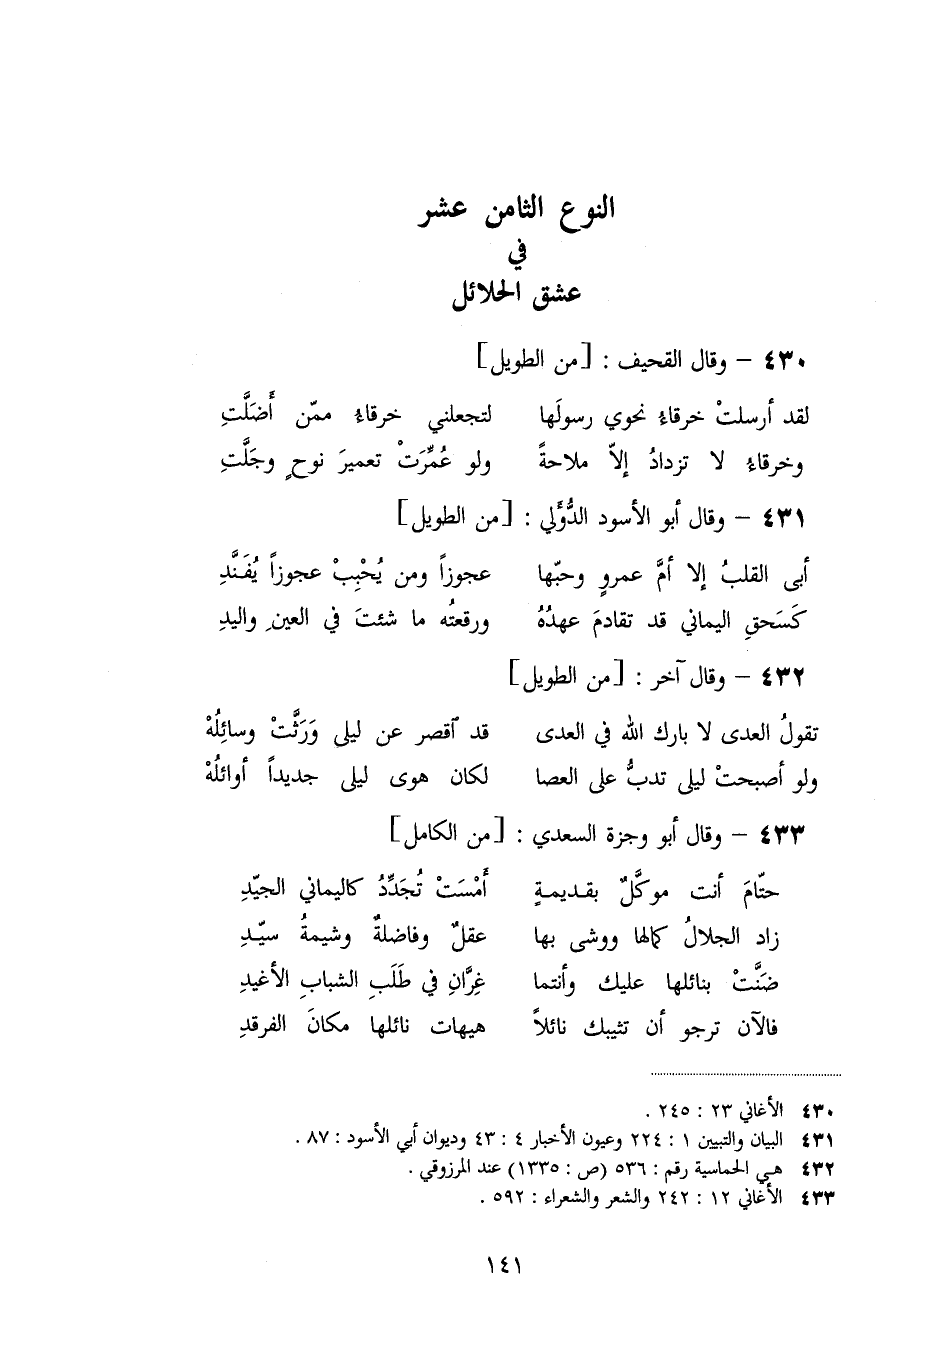 النوع الثامن عشر
في
عشق الحلائل
٤٣٠ – وقال القحيف : [من الطويل]
لقد أرسلتْ خرقاءُ نحوي رسولَها لتجعلني خرقاءُ ممّن أَضَلَّتِ
وخرقاءُ لا تزدادُ إلاّ ملاحةً ولو عُمِّرَتْ تعميرَ نوحٍ وجَلَّتِ
٤٣١ – وقال أبو الأسود الدُّؤَلي : [من الطويل]
أبى القلبُ إلا أمَّ عمروٍ وحبّها عجوزاً ومن يُحْبِبْ عجوزاً يُفَنَّدِ
كَسَحقِ اليماني قد تقادمَ عهدُهُ ورقعتُه ما شئتَ في العينِ واليدِ
٤٣٢ – وقال آخر : [من الطويل]
تقولُ العدى لا بارك الله في العدى قد ٱقصر عن ليلى وَرَثَّتْ وسائِلُهْ
ولو أصبحتْ ليلى تدبُّ على العصا لكان هوى ليلى جديداً أوائلُهْ
٤٣٣ – وقال أبو وجزة السعدي : [من الكامل]
حتّامَ أنت موكَّلٌ بقديمةٍ أَمْسَتْ تُجَدِّدُ كاليماني الجيّدِ
زاد الجلالُ كمالها ووشى بها عقلٌ وفاضلةٌ وشيمةُ سيّدِ
ضَنَّتْ بنائلها عليك وأنتما غِرَّانِ في طَلَبِ الشبابِ الأغيدِ
فالآن ترجو أن تثيبك نائلاً هيهات نائلها مكانَ الفرقدِ
٤٣٠ الأغاني ٢٣ : ٢٤٥ .
٤٣١ البيان والتبيين ١ : ٢٢٤ وعيون الأخبار ٤ : ٤٣ وديوان أبي الأسود : ٨٧ .
٤٣٢ هي الحماسية رقم : ٥٣٦ (ص : ١٣٣٥) عند المرزوقي .
٤٣٣ الأغاني ١٢ : ٢٤٢ والشعر والشعراء : ٥٩٢ .
١٤١